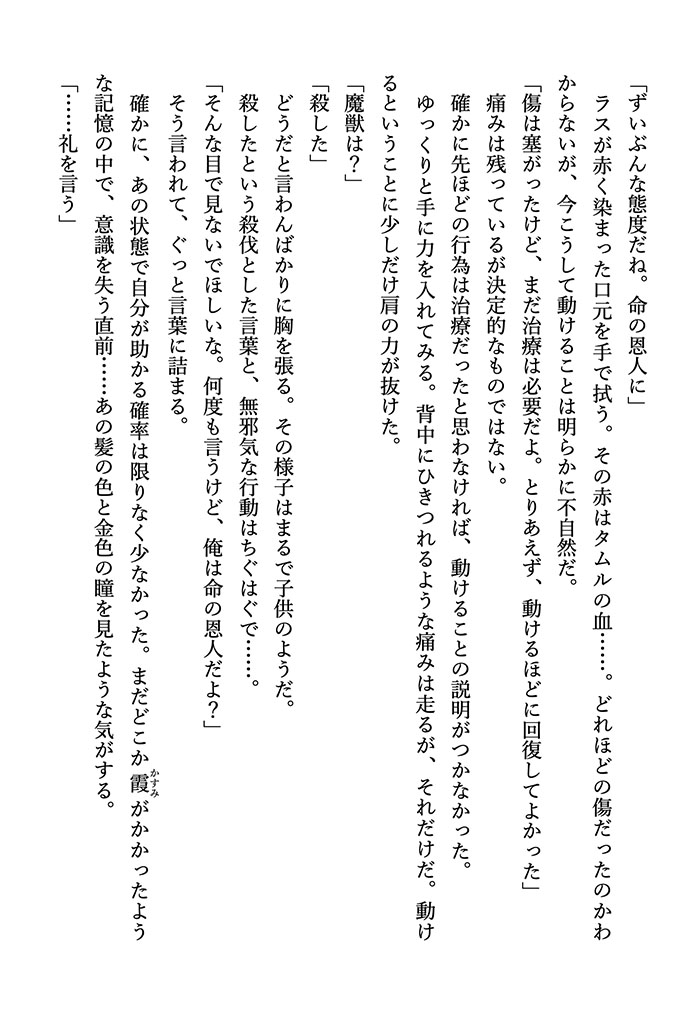 「ずいぶんな態度だね。命の恩人に」
ラスが赤く染まった口元を手で拭う。その赤はタムルの血……。どれほどの傷だったのかわ
からないが、今こうして動けることは明らかに不自然だ。
「傷は塞がったけど、まだ治療は必要だよ。とりあえず、動けるほどに回復してよかった」
痛みは残っているが決定的なものではない。
確かに先ほどの行為は治療だったと思わなければ、動けることの説明がつかなかった。
ゆっくりと手に力を入れてみる。背中にひきつれるような痛みは走るが、それだけだ。動け
るということに少しだけ肩の力が抜けた。
「魔獣は?」
「殺した」
どうだと言わんばかりに胸を張る。その様子はまるで子供のようだ。
殺したという殺伐とした言葉と、無邪気な行動はちぐはぐで……。
「そんな目で見ないでほしいな。何度も言うけど、俺は命の恩人だよ?」
そう言われて、ぐっと言葉に詰まる。
確かに、あの状態で自分が助かる確率は限りなく少なかった。まだどこか霞がかかったよう
かすみ
な記憶の中で、意識を失う直前……あの髪の色と金色の瞳を見たような気がする。
「……礼を言う」